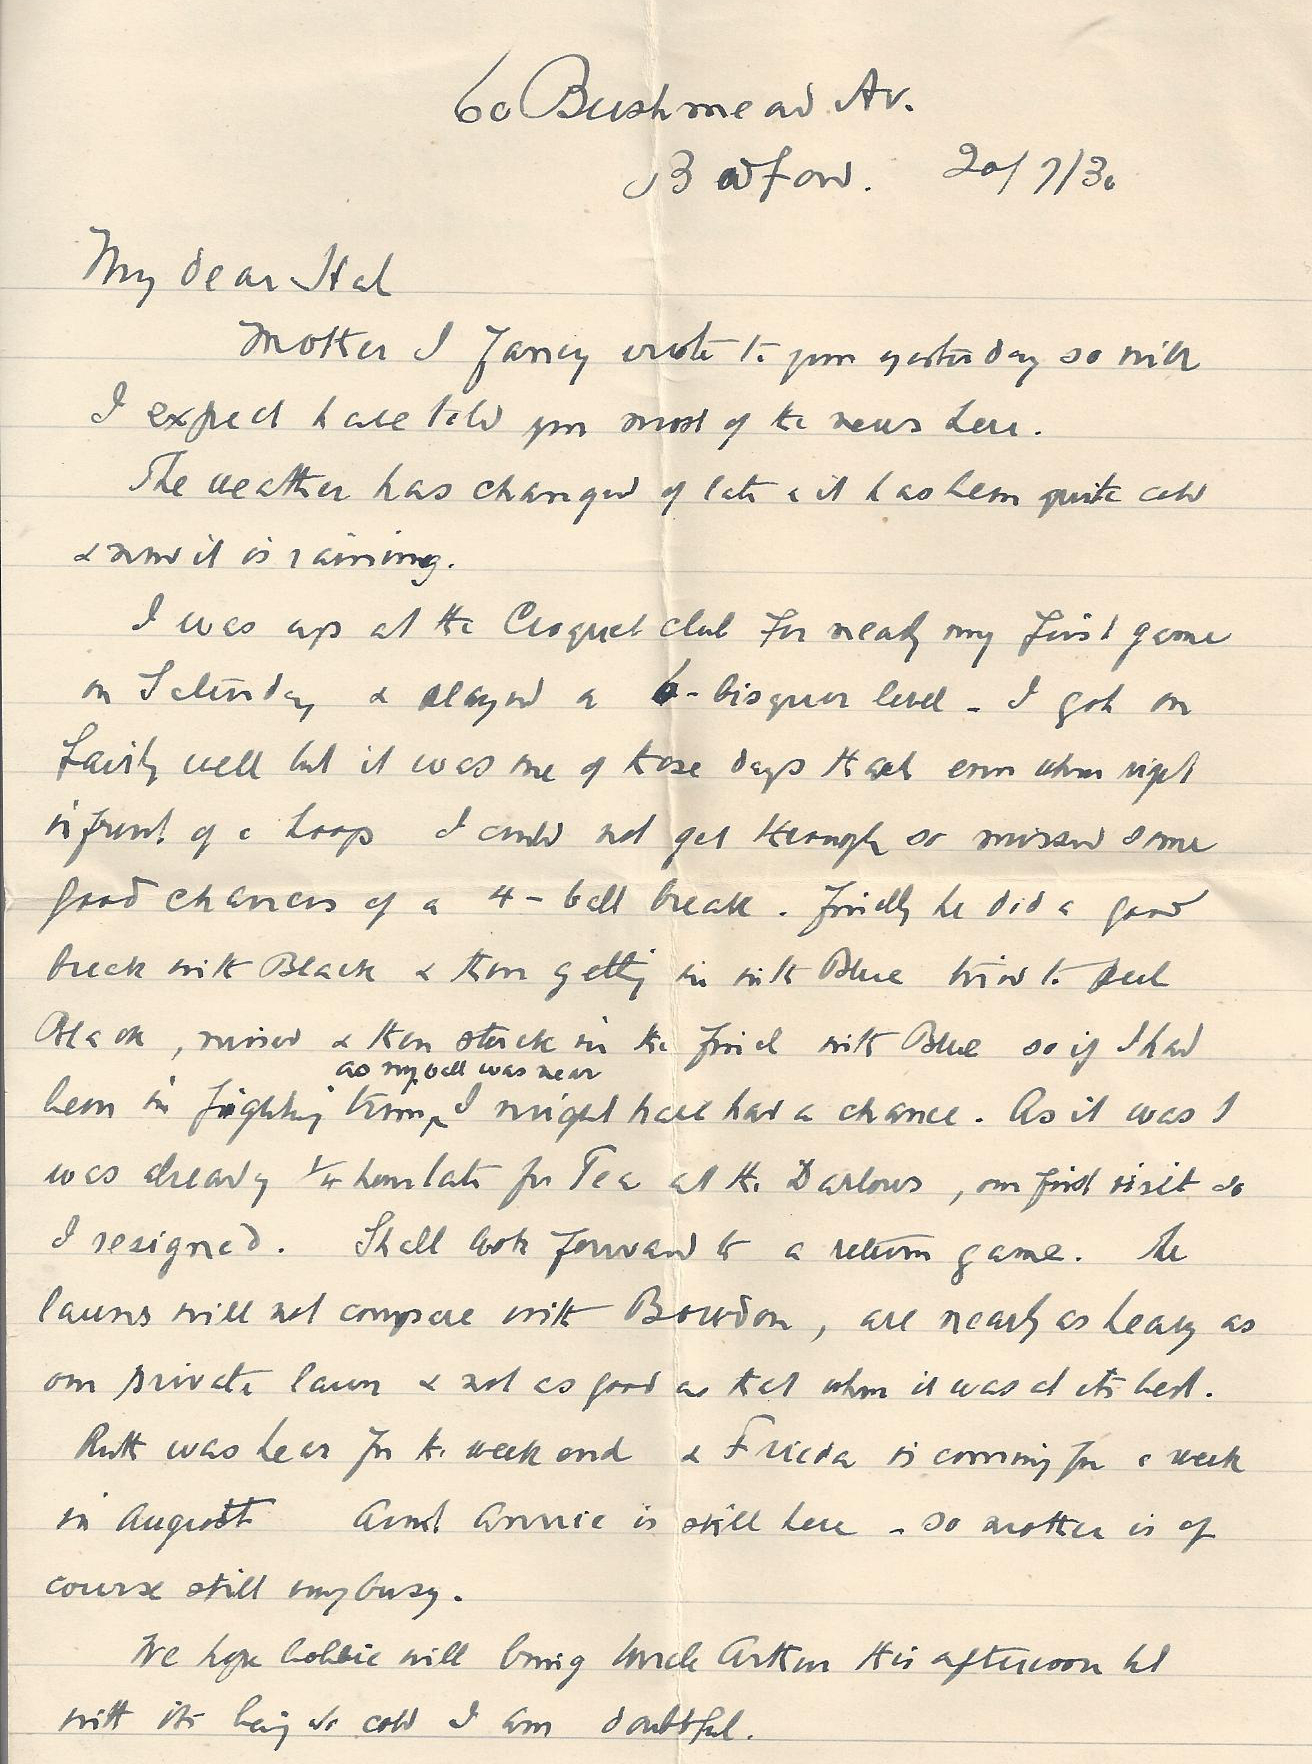 60 Bushmead Av.
Bedford. 20/7/30
My dear Hal
Mother I fancy wrote to you yesterday so will
I expect have told you most of the news here.
The weather has changed of late & it has been quite cold
& now it is raining.
I was up at the Croquet club for nearly my first game
on Saturday & played a 6-bisquer level - I got on
fairly well but it was one of those days that even when right
in front of a hoop I could not get through so missed some
good chances of a 4-ball break. Finally he did a good
break with Black & then getting in with Blue tried to peel
Black, missed & then stuck in the final with Blue so if I had
as my ball was near
been in fighting trim, I might have had a chance. As it was I
was already 1/4 hour late for Tea at the Darlows, our first visit so
I resigned. Shall look forward to a return game. The
lawns will not compare with Bowdon, are nearly as heavy as
our private lawn & not as good as that when it was at its best.
Ruth was hear for the week end & Frieda is coming for a week
in August Aunt Annie is still here - so mother is of
course still very busy.
We hope bobbie will bring Uncle Arthur this afternoon but
with its being so cold I am doubtful.